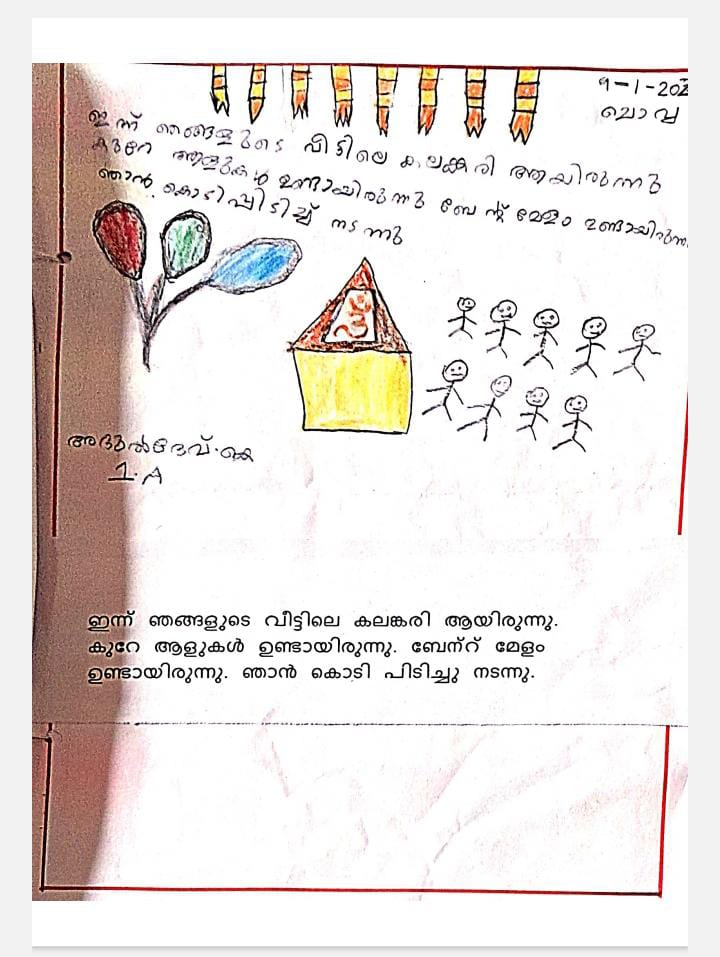 9-1-202
ചൊവ്വ
ഇന്ന് ഞങ്ങളുടെ വീട്ടിലെ കലങ്കരി ആയിരുന്നു
കുറേ ആളുകൾ ഉണ്ടായിരുന്നു ബേന്റ് മേളം ഉണ്ടായിരുന്ന
ഞാൻ കൊടിപ്പിടിച്ച് നടന്നു
അദ്വൽദേവ്.കെ
1.A
ഇന്ന് ഞങ്ങളുടെ വീട്ടിലെ കലങ്കരി ആയിരുന്നു.
കുറേ ആളുകൾ ഉണ്ടായിരുന്നു. ബേന്റ് മേളം
ഉണ്ടായിരുന്നു. ഞാൻ കൊടി പിടിച്ചു നടന്നു.